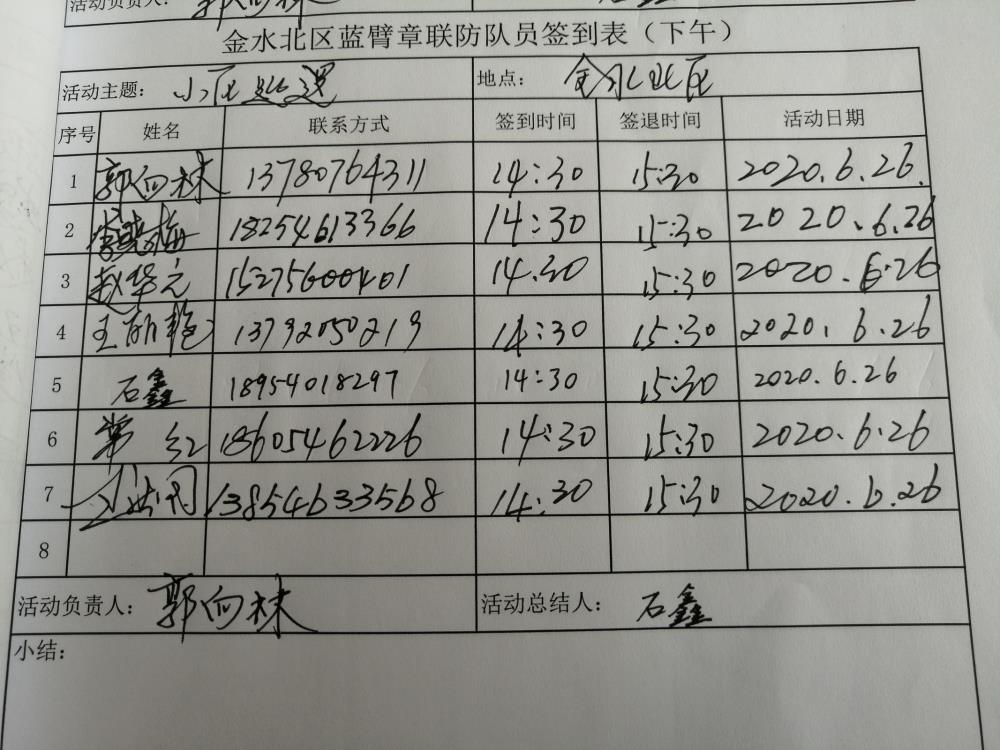 活动负责人：郭向林 石鑫
金水北区蓝臂章联防队员签到表（下午）
活动主题：小区巡逻 地点：金水北区
序号 姓名 联系方式 签到时间 签退时间 活动日期
1 郭向林 13780764311 14:30 15:30 2020.6.26.
2 18254613366 14:30 15:30 2020.6.26
3 赵华元 15275600401 14.30 15:30 2020.6.26
4 王丽艳 13792050219 14:30 15:30 2020.6.26
5 石鑫 18954018297 14:30 15:30 2020.6.26
6 常红 18605462226 14:30 15:30 2020.6.26
7 13854633568 14:30 15:30 2020.6.26
8
活动负责人：郭向林 活动总结人：石鑫
小结：